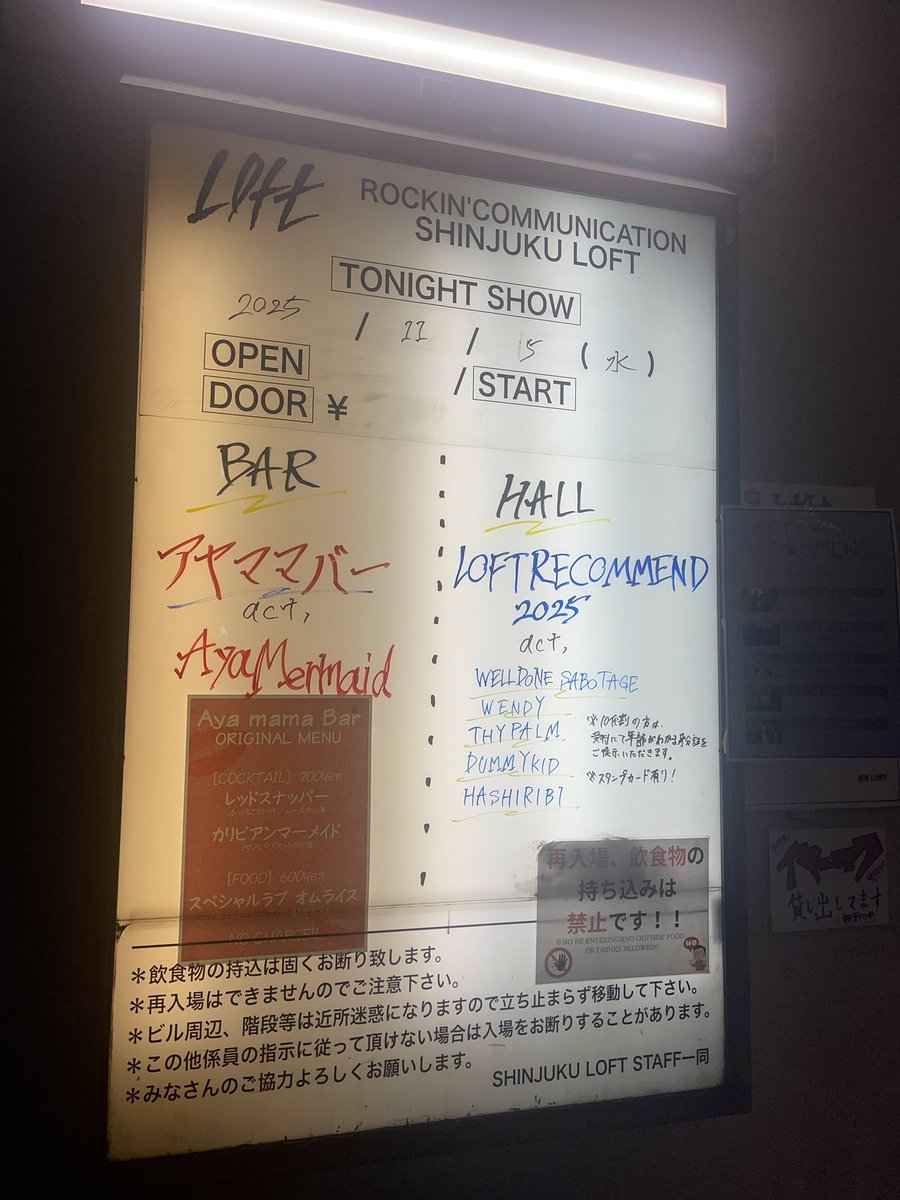 Loft
ROCKIN'COMMUNICATION
SHINJUKU LOFT
TONIGHT SHOW
2025 / 11 / 5 (水)
OPEN / START
DOOR ¥
BAR
アヤママバー
act,
AyaMermaid
Aya mama Bar
ORIGINAL MENU
[COCKTAIL] 700yen
レッドスナッパー
カリビアンマーメイド
メロンとマスカットのお酒
[FOOD] 600yen
スペシャルラブ オムライス
NO CHARGE!!
HALL
LOFTRECOMMEND
2025
act,
WELLDONE SABOTAGE
WENDY
THYPALM
DUMMYKID
HASHIRIBI
※10代割の方は、
受付にて年齢がわかる身分証を
ご提示いただきます。
※スタンプカード有り!
再入場、飲食物の
持ち込みは
禁止です!!
※NO RE-ENTERING&NO OUTSIDE FOOD
OR DRINKS ALLOWED!!
NO
＊飲食物の持込は固くお断り致します。
＊再入場はできませんのでご注意下さい。
＊ビル周辺、階段等は近所迷惑になりますので立ち止まらず移動して下さい。
＊この他係員の指示に従って頂けない場合は入場をお断りすることがあります。
＊みなさんのご協力よろしくお願いします。
SHINJUKU LOFT STAFF一同
貸し出してます